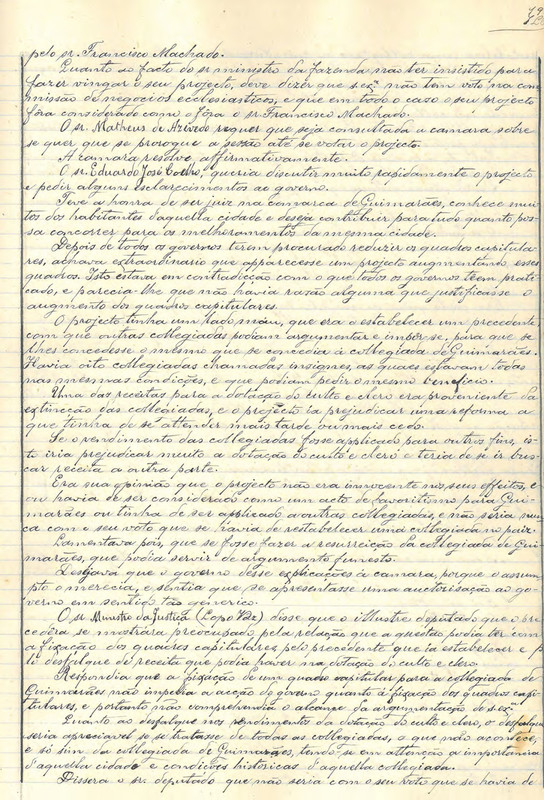 79
pelo sr. Francisco Machado.
Quanto ao facto do sr. ministro da fazenda não ter insistido para
fazer vingar o seu projecto, deve dizer que s. exª não tem voto na com-
missão de negocios ecclesiasticos, e que em todo o caso o seu projecto
fôra considerado como o fôra o sr. Francisco Machado.
O sr. Matheus de Azevedo requer que seja consultada a camara sobre
se quer que se prorogue a sessão até se votar o projecto.
A camara resolve affirmativamente.
O sr. Eduardo José Coelho, queria discutir muito rapidamente o projecto
e pedir alguns esclarecimentos ao governo.
Teve a honra de ser juiz na comarca de Guimarães, conhece mui-
tos dos habitantes d'aquella cidade e deseja contribuir para tudo quanto pos-
sa concorrer para os melhoramentos da mesma cidade.
Depois de todos os governos terem procurado reduzir os quadros capitula-
res, achava extraordinario que apparecesse um projecto augmentando esses
quadros. Isto estava em contradicção com o que todos os governos têem prati-
cado, e parecia-lhe que não havia razão alguma que justificasse o
augmento dos quadros capitulares.
O projecto tinha um lado mau, que era o estabelecer um precedente,
com que outras collegiadas podiam argumentar e impôr-se, para que se
lhes concedesse o mesmo que se concedia á collegiada de Guimarães.
Havia oito collegiadas chamadas insignes, as quaes estavam todas
nas mesmas condições, e que podiam pedir o mesmo beneficio.
Uma das receitas para a dotação do culto e clero era proveniente da
extincção das collegiadas, e o projecto ia prejudicar uma reforma a
que tinha de se attender mais tarde ou mais cedo.
Se o rendimento das collegiadas fosse applicado para outros fins, is-
to iria prejudicar muito a dotação do culto e clero e teria de se ir bus-
car receita a outra parte.
Era sua opinião que o projecto não era innocente nos seus effeitos, e
ou havia de ser considerado como um acto de favoritismo para Gui-
marães ou tinha de ser applicado a outras collegiadas, e não seria nun-
ca com o seu voto que se havia de restabelecer uma collegiada no paiz.
Lamentava pois, que se fosse fazer a resurreição da collegiada de Gui-
marães, que podia servir de argumento funesto.
Desejava que o governo desse explicações á camara, porque o assum-
pto o merecia, e sentia que se apresentasse uma auctorisação ao go-
verno em sentido tão generico.
O sr. Ministro da Justiça (Lopo Vaz) disse que o illustre deputado que o pre-
cedera se mostrára preocupado pela relação que a questão podia ter com
a fixação dos quadros capitulares, pelo precedente que ia estabelecer e p
lo desfalque de receita que podia haver na dotação do culto e clero.
Respondia que a fixação de um quadro capitular para a collegiada de
Guimarães não impedia a acção do governo quanto á fixação dos quadros capi-
tulares, e portanto não comprehendia o alcance da argumentação de s. exª.
Quanto ao desfalque nos rendimentos da dotação do culto e clero, o desfalque
seria apreciavel se se tratasse de todas as collegiadas, o que não acontece,
e só sim da collegiada de Guimarães, tendo-se em attenção a importancia
d'aquella cidade e condições historicas d'aquella collegiada.
Dissera o sr. deputado que não seria com o seu voto que se havia de